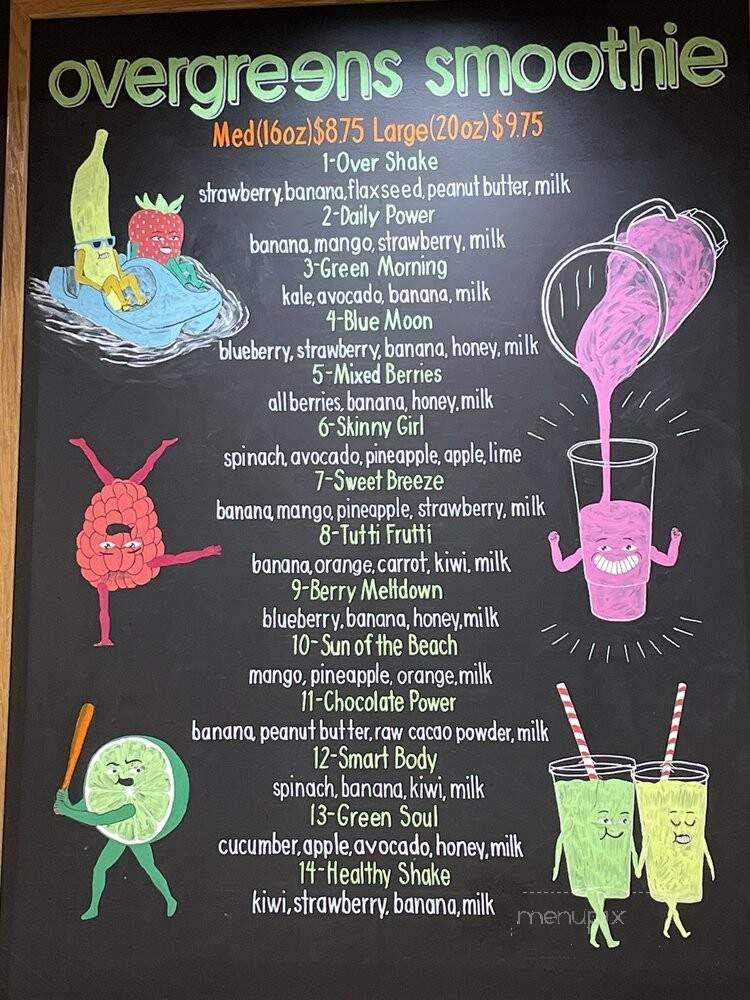 overgreens smoothie
Med(16oz)$8.75 Large(20oz)$9.75
1-Over Shake
strawberry,banana,flaxseed,peanut butter, milk
2-Daily Power
banana,mango,strawberry, milk
3-Green Morning
kale,avocado,banana,milk
4-Blue Moon
blueberry,strawberry,banana,honey,milk
5-Mixed Berries
all berries,banana,honey,milk
6-Skinny Girl
spinach,avocado,pineapple,apple,lime
7-Sweet Breeze
banana,mango,pineapple, strawberry, milk
8-Tutti Frutti
banana,orange,carrot, kiwi, milk
9-Berry Meltdown
blueberry,banana,honey,milk
10-Sun of the Beach
mango, pineapple, orange,milk
11-Chocolate Power
banana, peanut butter,raw cacao powder, milk
12-Smart Body
spinach,banana,kiwi, milk
13-Green Soul
cucumber,apple,avocado,honey,milk
14-Healthy Shake
kiwi,strawberry, banana,milk
menupix